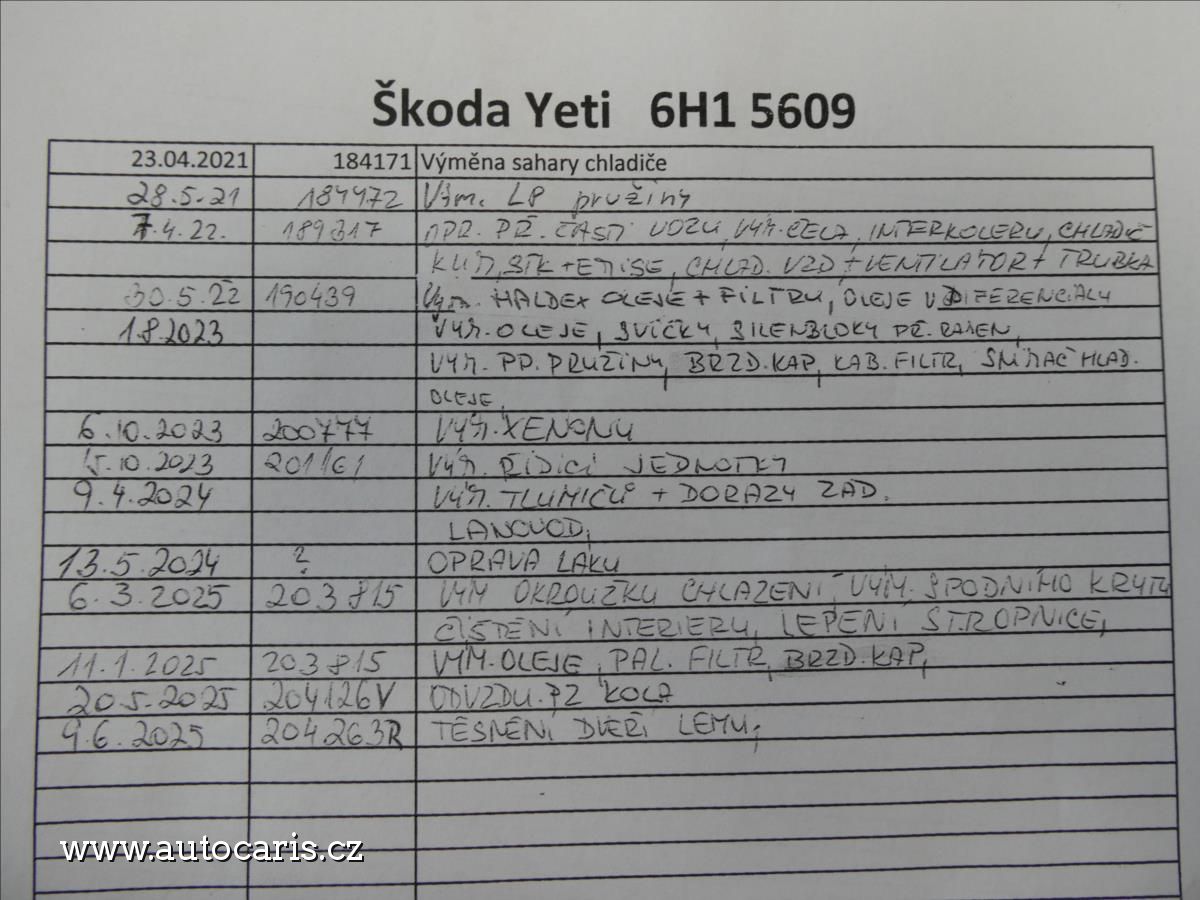 Škoda Yeti 6H1 5609
23.04.2021 184171 Výměna sahary chladiče
28.5.21 184472 Vým. LP pružiny
7.4.22. 189317 OPR. PŘ. ČÁSTI VOZU, VÝM. ČELA, INTERKOLERU, CHLADIČ
KLIM, STK + EMISE, CHLAD. VZD + VENTILÁTOR + TRUBKA
30.5.22 190439 Vým. HALDEX OLEJE + FILTRU, OLEJE V DIFERENCIÁLU
1.8.2023 VÝM. OLEJE, SVÍČKY, SILENBLOKY PŘ. RAMEN,
VÝM. PP. PRUŽINY, BRZD. KAP, KAB. FILTR, SNÍMAČ HLAD.
OLEJE,
6.10.2023 200777 VÝM. XENONU
15.10.2023 201161 VÝM. ŘÍDÍCÍ JEDNOTKY
9.4.2024 VÝM. TLUMIČŮ + DORAZY ZAD.
LANOVOD,
13.5.2024 ? OPRAVA LAKU
6.3.2025 203815 VÝM OKROUŽKU CHLAZENÍ, VÝM. SPODNÍHO KRYTU
ČIŠTĚNÍ INTERIERU, LEPENÍ STROPNICE,
11.1.2025 203815 VÝM. OLEJE, PAL. FILTR, BRZD. KAP,
20.5.2025 204126V ODVZDU. PZ KOLA
9.6.2025 204263R TĚSNĚNÍ DVEŘÍ LEMU,
www.autocaris.cz